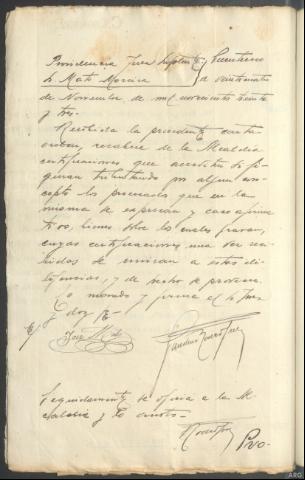 Providencia Juez suplente Puenteceso
D. Mato Moreira a veinticuatro
de Noviembre de mil novecientos treinta
y tres.
Recibida la precedente carta
orden, recabese de la Alcaldia
certificaciones que acrediten si fi
guran tributando por algun con
cepto los procesados que en la
misma se expresan y caso afirma
tivo, bienes sobre los cuales gravan,
cuyas certificaciones una vez reci
bidas se uniran a estas di
ligencias, y de no se proveera.
Lo mando y firma el Sr Juez
y doy fe
José Mato
Seguidamente se oficia a la Al
caldia y lo anoto.
ARG